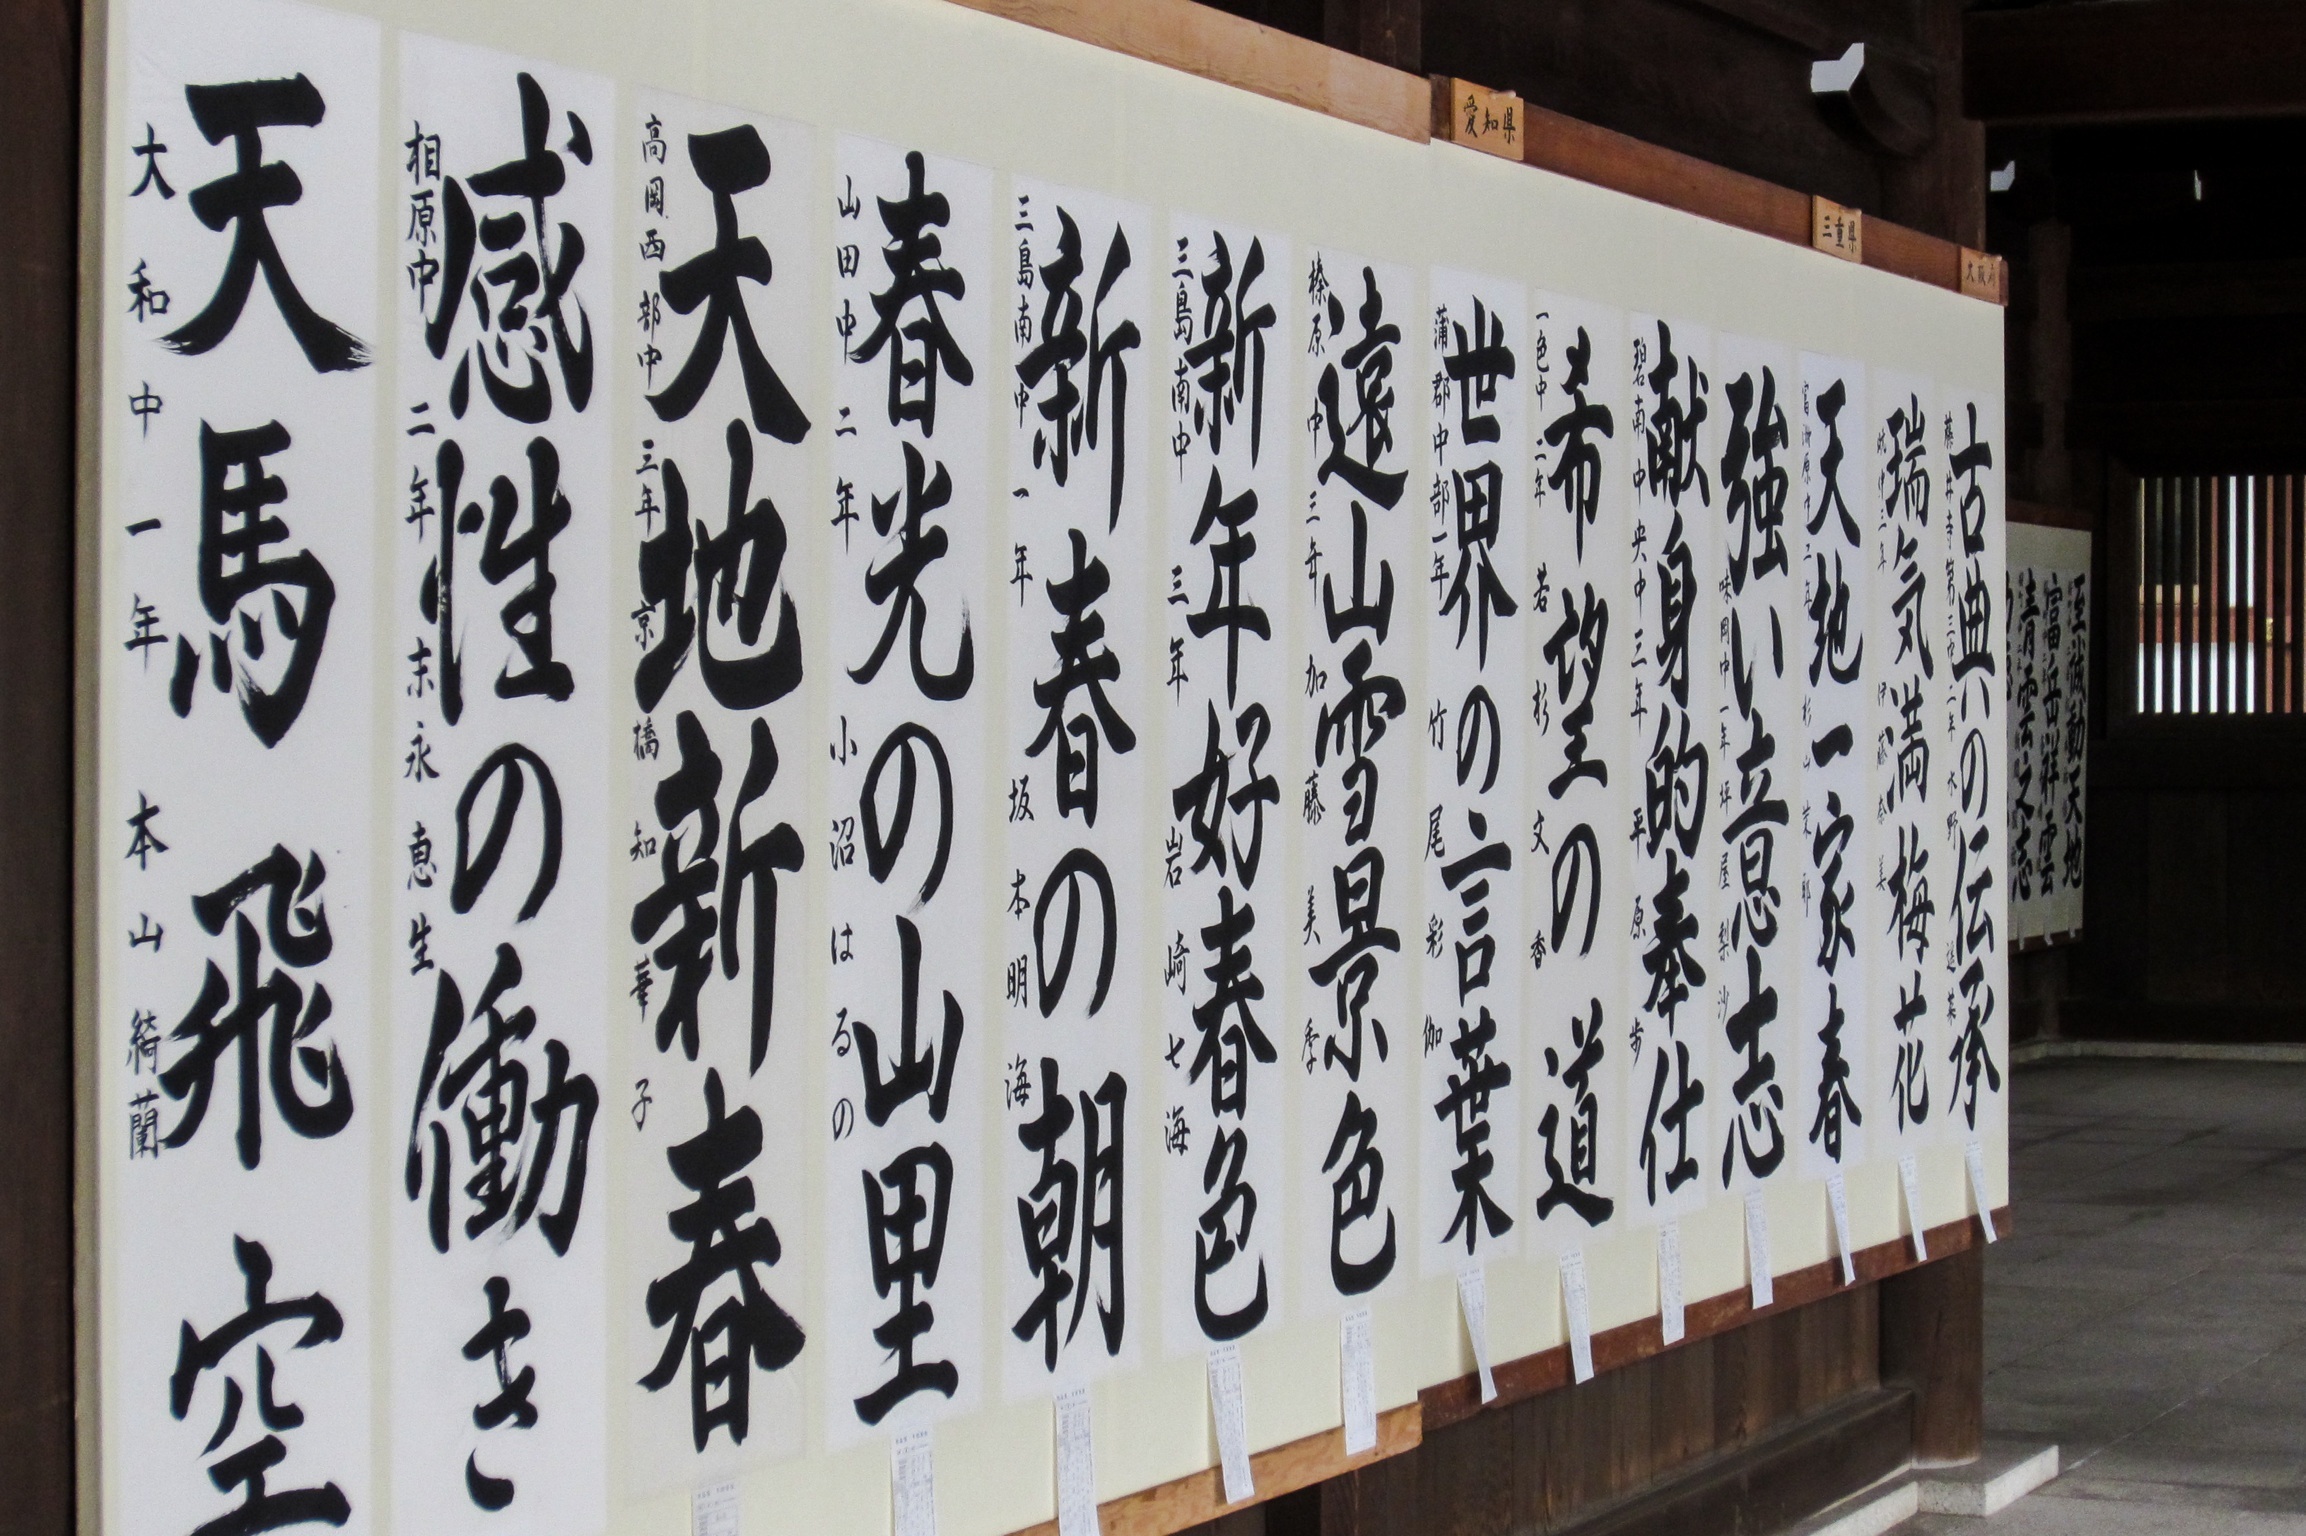 愛知県
三重県
大阪府
古典の伝承
藤井寺第三中二年
瑞気満梅花
伊藤奈美
天地一家春
強い意志
味岡中一年 坪屋梨沙
献身的奉仕
碧南中央中三年 平原歩
希望の道
一色中二年 若杉文香
世界の言葉
蒲郡中部一年 竹尾彩伽
遠山雪景色
榛原中三年 加藤美季
新年好春色
三島南中三年 岩崎七海
新春の朝
三島南中一年 坂本明海
春光の山里
山田中二年 小沼はるの
天地新春
高岡西部中三年 京橋知華子
感性の働き
相原中二年 末永恵生
天馬飛空
大和中一年 本山綺蘭
至誠動天地
富岳祥雲
青雲之志